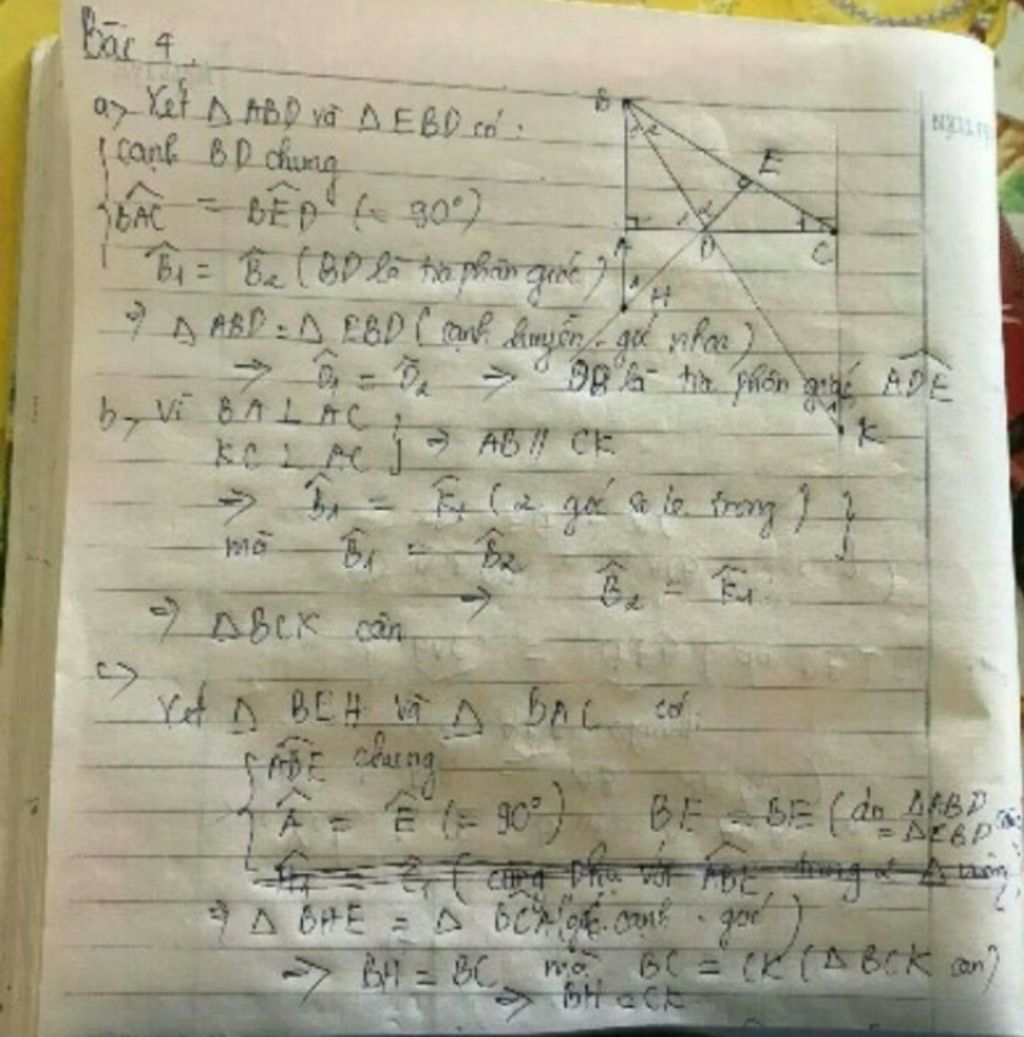 Bài 4.
a, Xét Δ ABD và Δ EBD có:
cạnh BD chung
BAC = BED (= 90°)
B1 = B2 (BD là tia phân giác)
=> Δ ABD = Δ EBD (cạnh huyền - góc nhọn)
=> D1 = D2 => DB là tia phân giác ADE
b, Vì BA ⊥ AC
KC ⊥ AC => AB // CK
=> B1 = K1 (2 góc so le trong)
mà B1 = B2
=> B2 = K1
=> Δ BCK cân
c,
Xét Δ BEH và Δ BAC có
ABE chung
A = E (= 90°) BE = BE (do ΔABD
= ΔEBD
=> Δ BHE = Δ BCA (góc. cạnh - góc)
=> BH = BC mà BC = CK (Δ BCK cân)
=> BH = CK
B
2
E
1 2
1
A
D
C
H
1
K